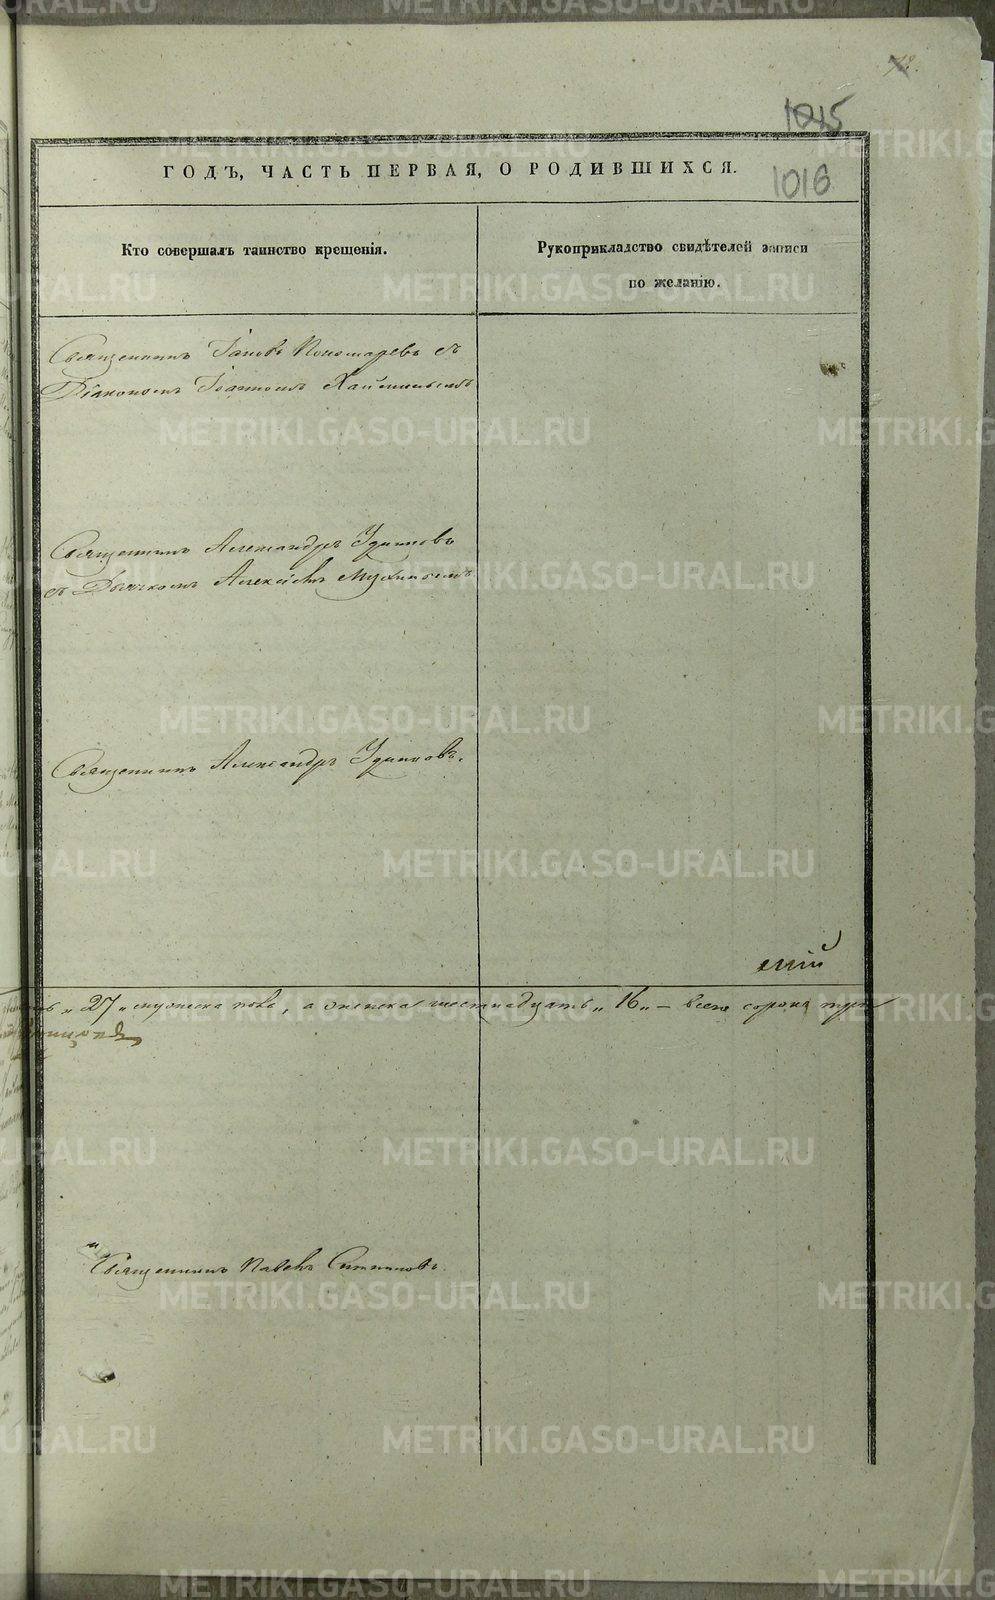 1015
ГОДЪ, ЧАСТЬ ПЕРВАЯ, О РОДИВШИХСЯ.
1016
Кто совершалъ таинство крещенія.
Рукоприкладство свидѣтелей записи
по желанію.
Священникъ Іаковъ Пономаревъ съ
Діакономъ Іоанномъ
Священникъ Александръ Удинцовъ
съ Дьячкомъ Алексѣемъ Мухинымъ
Священникъ Александръ Удинцовъ.
27 мужеска пола, а женска шестнадцать „16„ – всего сорокъ три
Священникъ Павелъ
METRIKI.GASO-URAL.RU